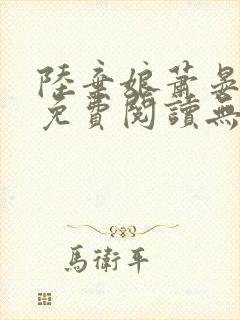 陸棄娘蕭晏
免費閱讀無
馬衛平